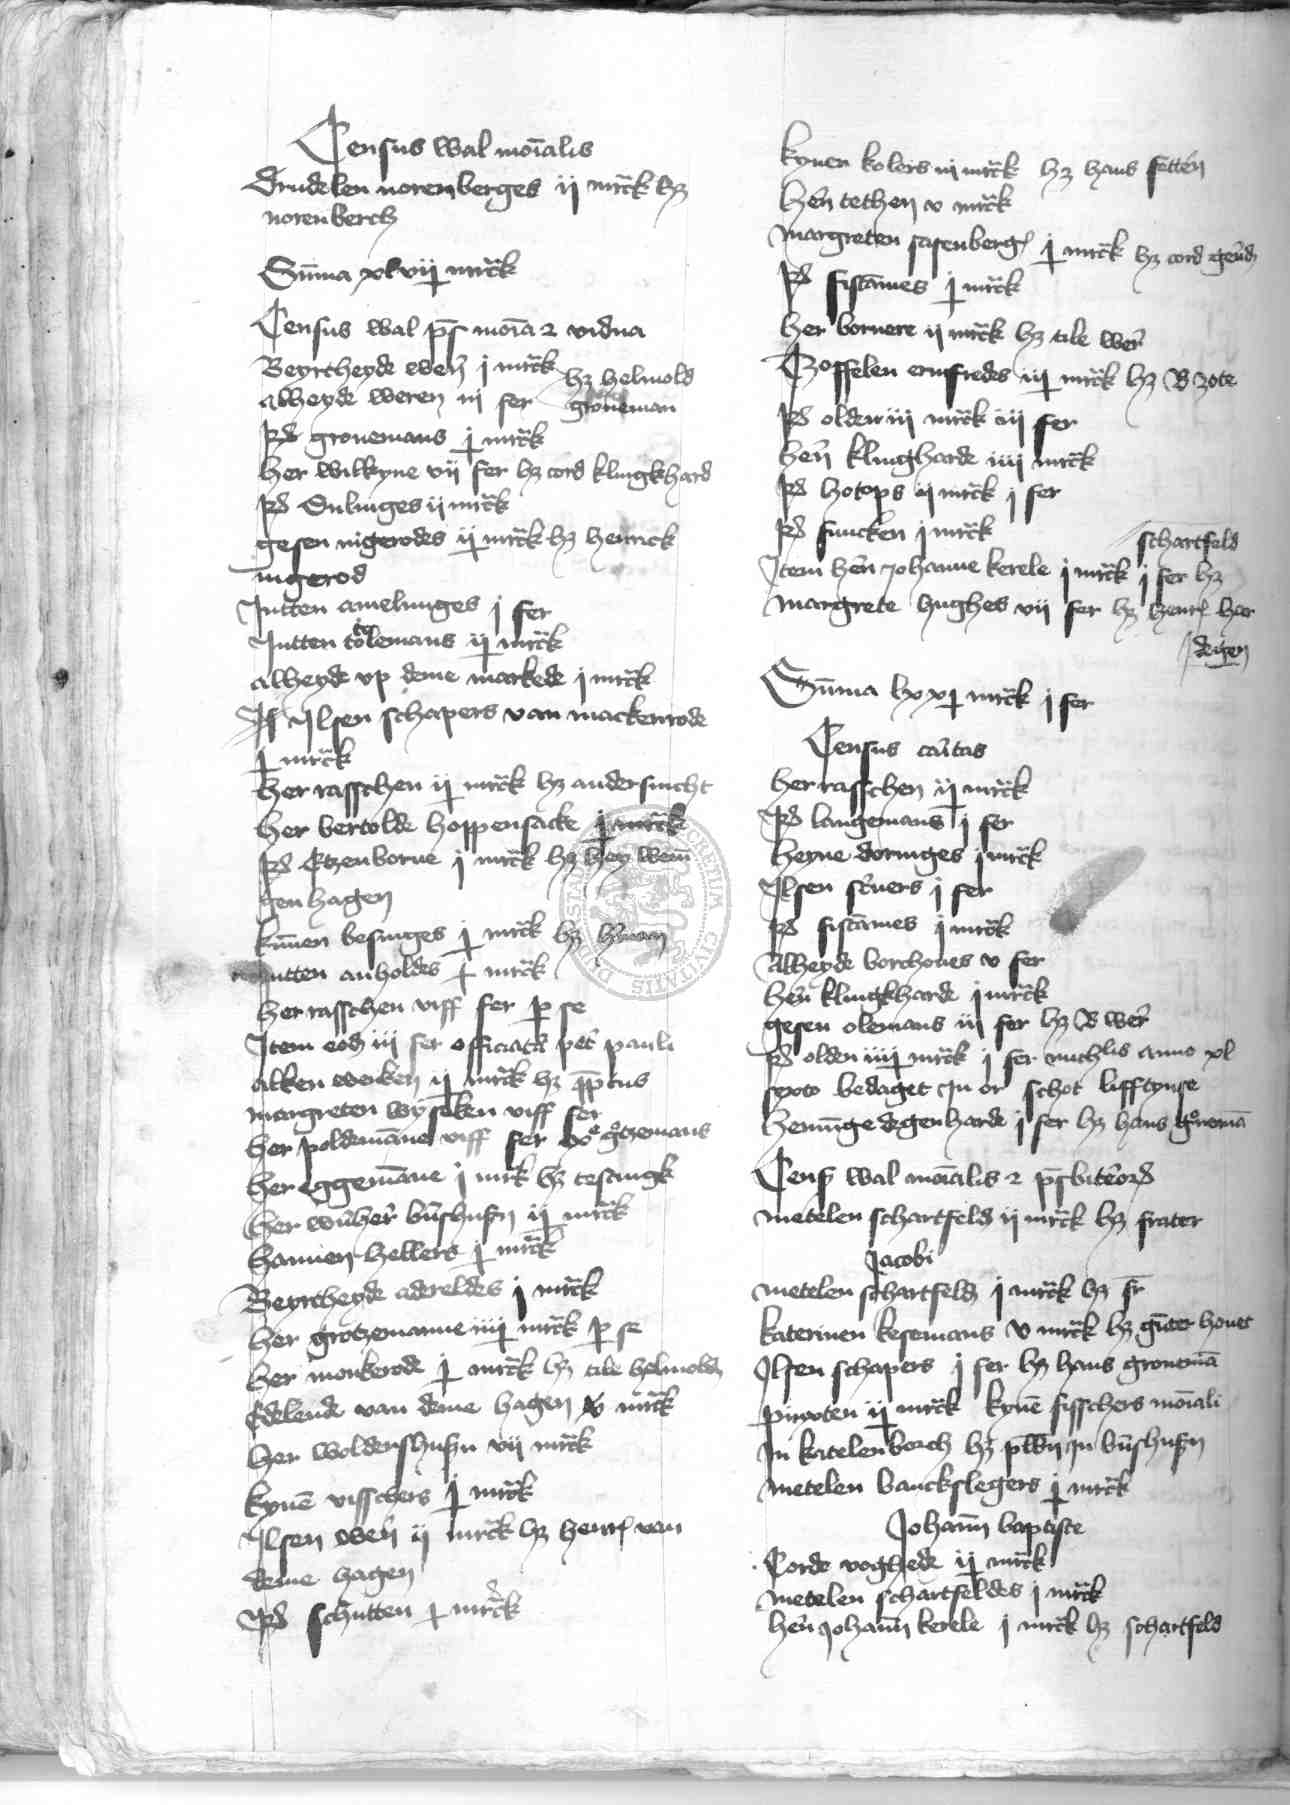 Census wal moīalis
Drudelen norenberges ij mrck hꝫ
norenberch
Sūma xlvij mrck
Census wal pſ moīa ⁊ vidua
Beyrtheyde weren j mrck
alheyde weren iij fer hꝫ helmold groneman
Rel gronemans j mrck
her wilkyne vij fer hꝫ cord klingkhard
Rel Dulinges ij mrck
gesen nigerodes ij mrck hꝫ henrick
nigerod
Jutten amelunges j fer
Jutten tolemans ij mrck
alheyde vp deme markede j mrck
Ilsen schapers van mackenrode
j mrck
her rasschen ij mrck hꝫ andersucht
her bertolde hoppensacke j mrck
Rel Etzenborne j mrck hꝫ hey wem
gen hagen
kunen besinges j mrck hꝫ
Jutten anholdes j mrck
her rasschen viff fer p se
Item eod iij fer officiata petr pauli
alken weken ij mrck hꝫ
margreten wyseken viff fer
her poldemāne viff fer grotzemans
her eggemāne j mrk hꝫ testingk
her bushusen ij mrck
hannen hellers j mrck
Beyrtheyde adereldes j mrck
her grotzemanne iiij mrck p se
her monkerode j mrck hꝫ tile helmold
Edelende van deme hagen v mrck
her woldershusen vij mrck
kynē visschers j mrck
Ilsen weren ij mrck hꝫ henr van
deme hagen
Rel schutten j mrck
kynen kolers iij mrck hꝫ hans fetten
hēn tethen v mrck
margreten sasenberg j mrck hꝫ cord
Rel fistāmes j mrck
her bornere ij mrck hꝫ tile wer
Goffelen ernfredes iij mrck hꝫ B zote
Rel olden iij mrck iij fer
hēn klingharde iiij mrck
Rel hotops ij mrck j fer
Rel funcken j mrck
Item hēn Johanne kerele j mrck j fer hꝫ schartfeld
margrete hughes vij fer hꝫ henr har
degen
Sūma lxxj mrck j fer
Census caritas
her rasschen ij mrck
Rel langemans j fer
heyne doringes j mrck
Ilsen scriuers j fer
Rel fistāmes j mrck
Alheyde borchoues v fer
hēn klingkharde j mrck
gesen olemans iij fer hꝫ B wer
Rel olden iiij mrck j fer michlis anno xl
sexto bedaget in or schot lifftynse
henninge degenharde j fer hꝫ hans gronemā
Cens wal moīalis ⁊ pſbiterorum
metelen schartfeld ij mrck hꝫ frater
Jacobi
metelen schartfeld j mrck hꝫ fr
katerinen kesemans v mrck hꝫ gūter houet
Ilsen schapers j fer hꝫ hans gronemā
pinxten ij mrck kynē fisschers moīali
in katelenborch hꝫ in bushusen
metelen banckslegers j mrck
Johann baptiste
Corde voghede ij mrck
metelen schartfeldes j mrck
hēn Johann kerele j mrck hꝫ schartfeld